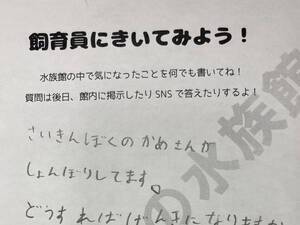 飼育員にきいてみよう！
水族館の中で気になったことを何でも書いてね！
質問は後日、館内に掲示したりSNSで答えたりするよ！
さいきんぼくのかめさんが
しょんぼりしてます。
どうすればげんきになりますか
の水族館